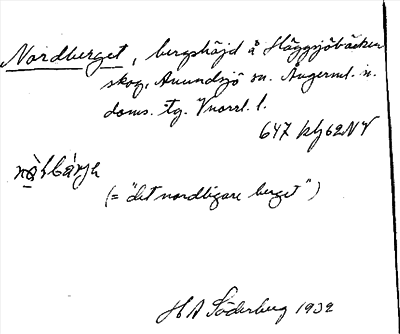 Nordberget, bergshöjd å Häggsjöbäcken
skog, Anundsjö sn. Ångerml. n.
doms. tg. Vnorrl. l.
647 kbj 62 NV
(= "det nordligare berget")
H A Söderberg 1932